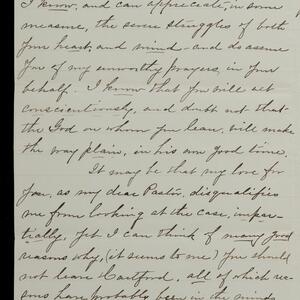 I know, and can appreciate, in some
measure, the sense struggles of both
your heart, and mind - and do assure
you of my unworthy prayers, in your
behalf. I know that you will act
conscientiously, and doubt not that
the God on whom you lean, will make
the way plain, in his own good time.
It may be that my love for
you, as my dear Pastor, disqualifies
me from looking at the case, impar-
tially, yet I can think of many good
reasons why, (it seems to me) you should
not leave Hartford, all of which rea-
sons have probably been in the minds